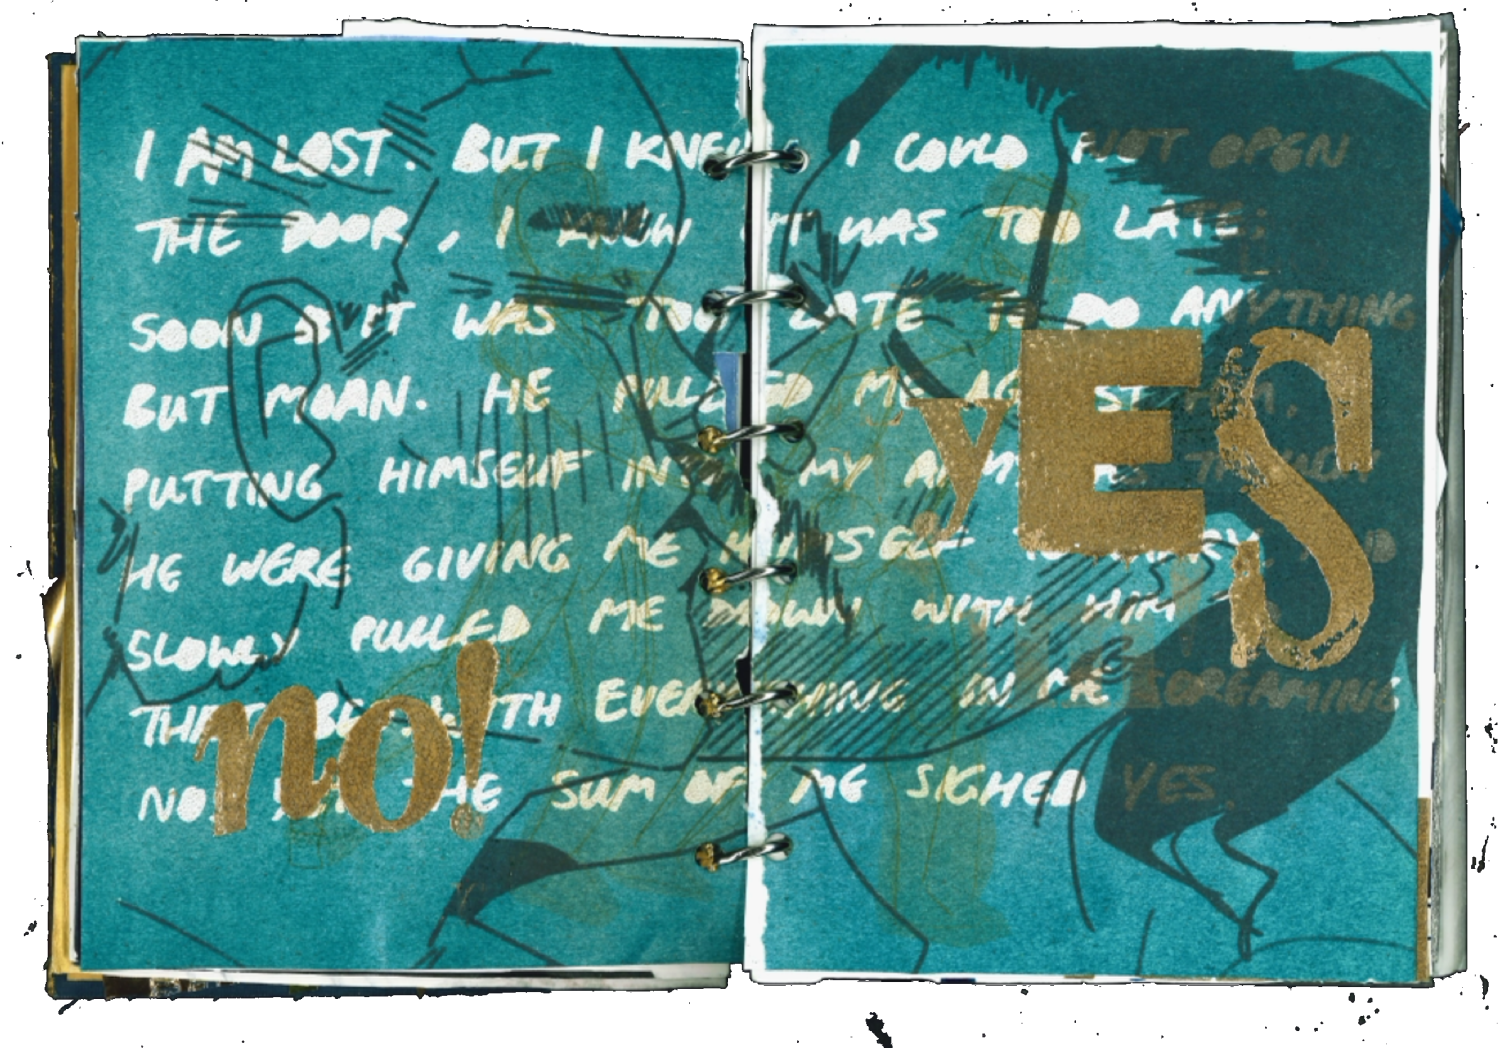 I AM LOST. BUT I KNEW I COULD NOT OPEN
THE DOOR, I KNOW IT WAS TOO LATE:
SOON IT WAS TOO LATE TO DO ANYTHING
BUT MOAN. HE PULLED ME AGAINST HIM,
PUTTING HIMSELF INTO MY ARMS
HE WERE GIVING ME HIMSELF TO CARRY
SLOWLY PULLED ME DOWN WITH HIM
THAT WITH EVERYTHING IN ME
NO. THE SUM OF ME SIGHED YES.
yES
no!